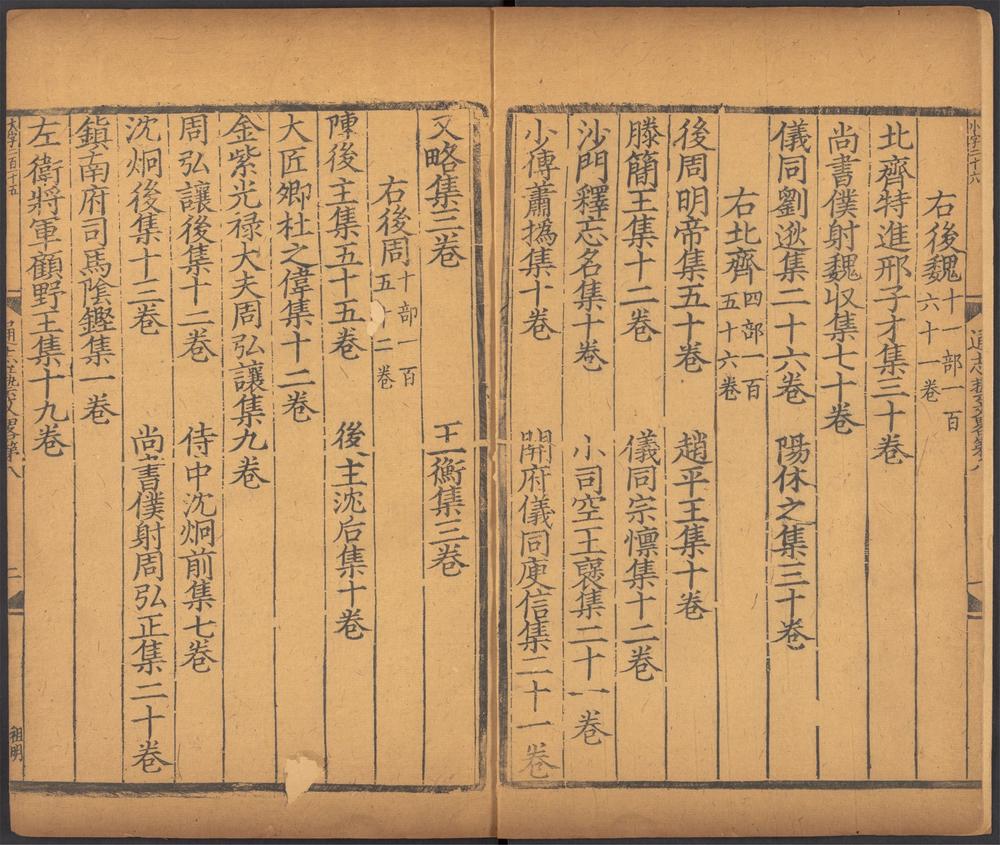 小字二十六
通志藝文略第八
右後魏十一部一百六十一卷
北齊特進邢子才集三十卷
尚書僕射魏收集七十卷
儀同劉逖集二十六卷 陽休之集三十卷
右北齊四部一百五十六卷
後周明帝集五十卷 趙平王集十卷
滕簡王集十二卷 儀同宗懍集十二卷
沙門釋忘名集十卷 小司空王襃集二十一卷
少傅蕭撝集十卷 開府儀同庾信集二十一卷
又略集三卷 王衡集三卷
右後周十部一百五十二卷
陳後主集五十五卷 後主沈后集十卷
大匠卿杜之偉集十二卷
金紫光禄大夫周弘讓集九卷
周弘讓後集十二卷 侍中沈炯前集七卷
沈炯後集十三卷 尚書僕射周弘正集二十卷
鎮南府司馬陰鏗集一卷
左衛將軍顧野王集十九卷
大字二百二十五
祖明